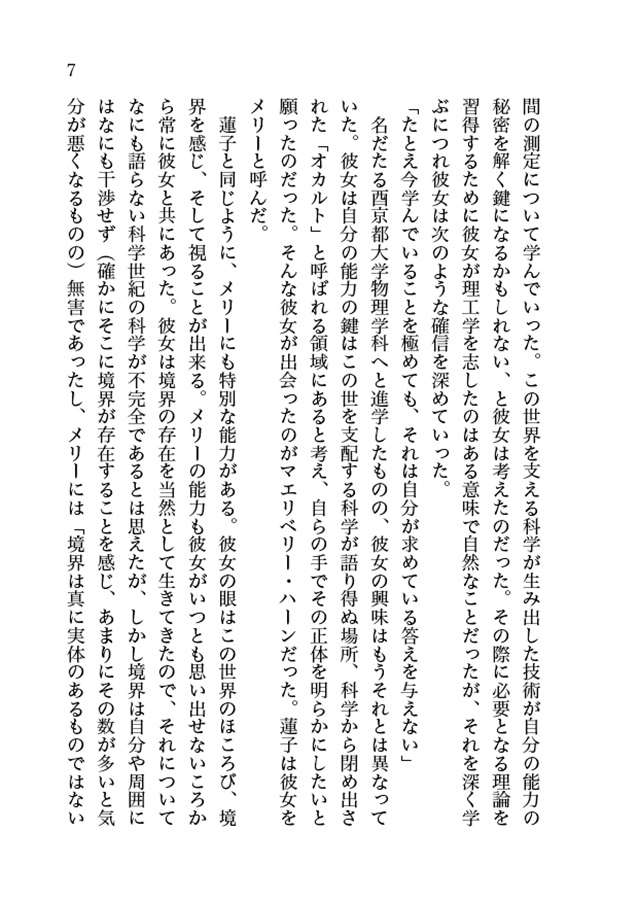 7
間の測定について学んでいった。この世界を支える科学が生み出した技術が自分の能力の
秘密を解く鍵になるかもしれない、と彼女は考えたのだった。その際に必要となる理論を
習得するために彼女が理工学を志したのはある意味で自然なことだったが、それを深く学
ぶにつれ彼女は次のような確信を深めていった。
「たとえ今学んでいることを極めても、それは自分が求めている答えを与えない」
名だたる酉京都大学物理学科へと進学したものの、彼女の興味はもうそれとは異なって
いた。彼女は自分の能力の鍵はこの世を支配する科学が語り得ぬ場所、科学から閉め出さ
れた「オカルト」と呼ばれる領域にあると考え、自らの手でその正体を明らかにしたいと
願ったのだった。そんな彼女が出会ったのがマエリベリー・ハーンだった。蓮子は彼女を
メリーと呼んだ。
蓮子と同じように、メリーにも特別な能力がある。彼女の眼はこの世界のほころび、境
界を感じ、そして視ることが出来る。メリーの能力も彼女がいつとも思い出せないころか
ら常に彼女と共にあった。彼女は境界の存在を当然として生きてきたので、それについて
なにも語らない科学世紀の科学が不完全であるとは思えたが、しかし境界は自分や周囲に
はなにも干渉せず（確かにそこに境界が存在することを感じ、あまりにその数が多いと気
分が悪くなるものの）無害であったし、メリーには「境界は真に実体のあるものではない